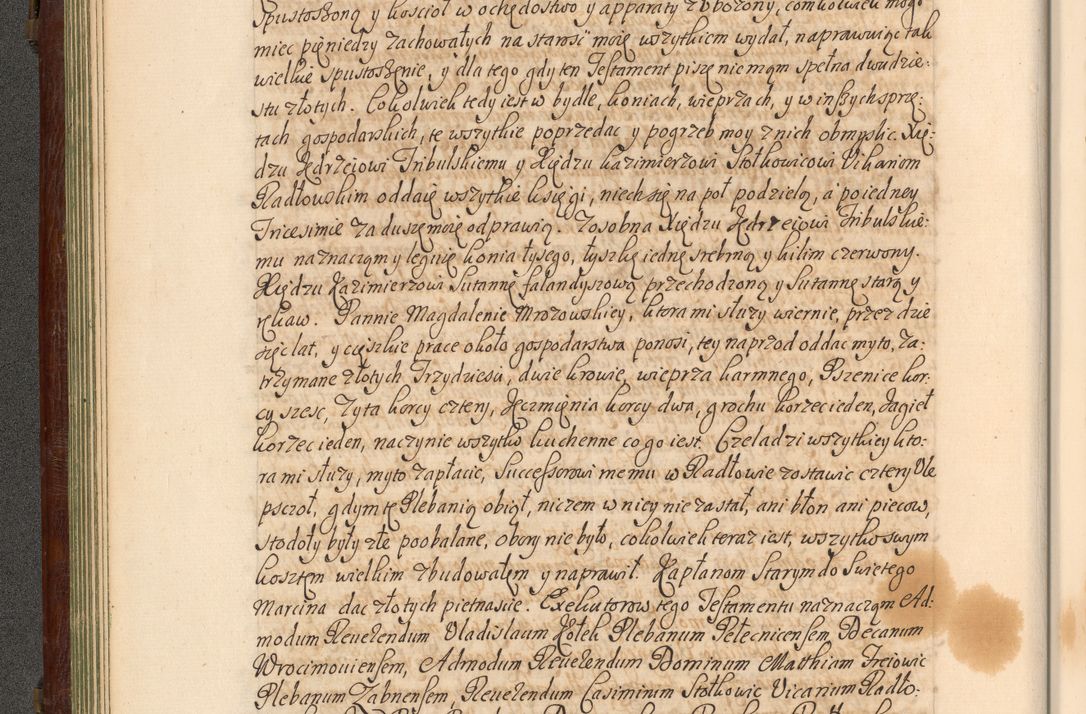 Spustoszoną y kościoł w ochędostwo y apparaty zubożony, comkolwiek mogł
miec pięniedzy zachowałych na starosć moię wszytkiem wydał, naprawuiąc tak
wielkie spustoszęnie, y dla tego gdy ten Testament piszę nie mąm spełna dwudzie:
stu złotych. Cokolwiek tedy iest w bydle, koniach, wieprzach, y w inszych sprzę:
tach gospodarskich, te wszytkie poprzedac y pogrzeb moy z nich obmyslic. Xię:
dzu Jędrzeiowi Tribulskiemu y Xiędzu Kazimierzowi Stołkowicowi Vikariom
Radłowskim oddaię wszytkie księgi, niech się na poł podzielą, a po iedney
Tricesimie za duszę moię odprawią. Zosobna Xiędzu Jędrzeiowi Tribulskie:
mu naznacząm y leguię konia łysego, łyszkę iednę srebrną y kilim czerwony.
Xiędzu Kazimierzowi Sutannę falandyszową przechodzoną y Sutannę starą y
rękaw. Pannie Magdalenie Mrozowskiey, ktora mi służy wiernie, przez dzie
sięc lat, y cięszkie prace około gospodarstwa ponosi, tey naprzod oddac myto, za:
trzymane złotych Trzydziesci, dwie krowie, wieprza karmnego, Pszenice kor:
cy szesc, Zyta korcy cztery, Jęczmięnia korcy dwa, grochu korzec ieden, Jagieł
korzec ieden, naczynie wszytko kuchenne co go iest. Czeladzi wszytkiey kto:
ra mi służy, myto zapłacic, Successorowi memu w Radłowie zostawic cztery Vle
pszczoł, gdym tę Plebanią obiął, niczem w niey nie zastał, ani błon ani piecow,
stodoły były złe poobalane, obory nie było, cokolwiek teraz iest, wszytko swym
kosztem wielkim zbudowałęm y naprawił. Kapłanom Starym do Swiętego
Marcina dac złotych pietnascie. Exekutorow tego Testamentu naznacząm Ad:
modum Reverendum Vladislaum Kołek Plebanum Pełecnicensem, Decanum
Wrocimoviensem, Admodum Reverendum Dominum Matthiam Treiowic
Plebanum Zabnensem, Reverendum Casimirum Stołkowic Vicarium Radło: